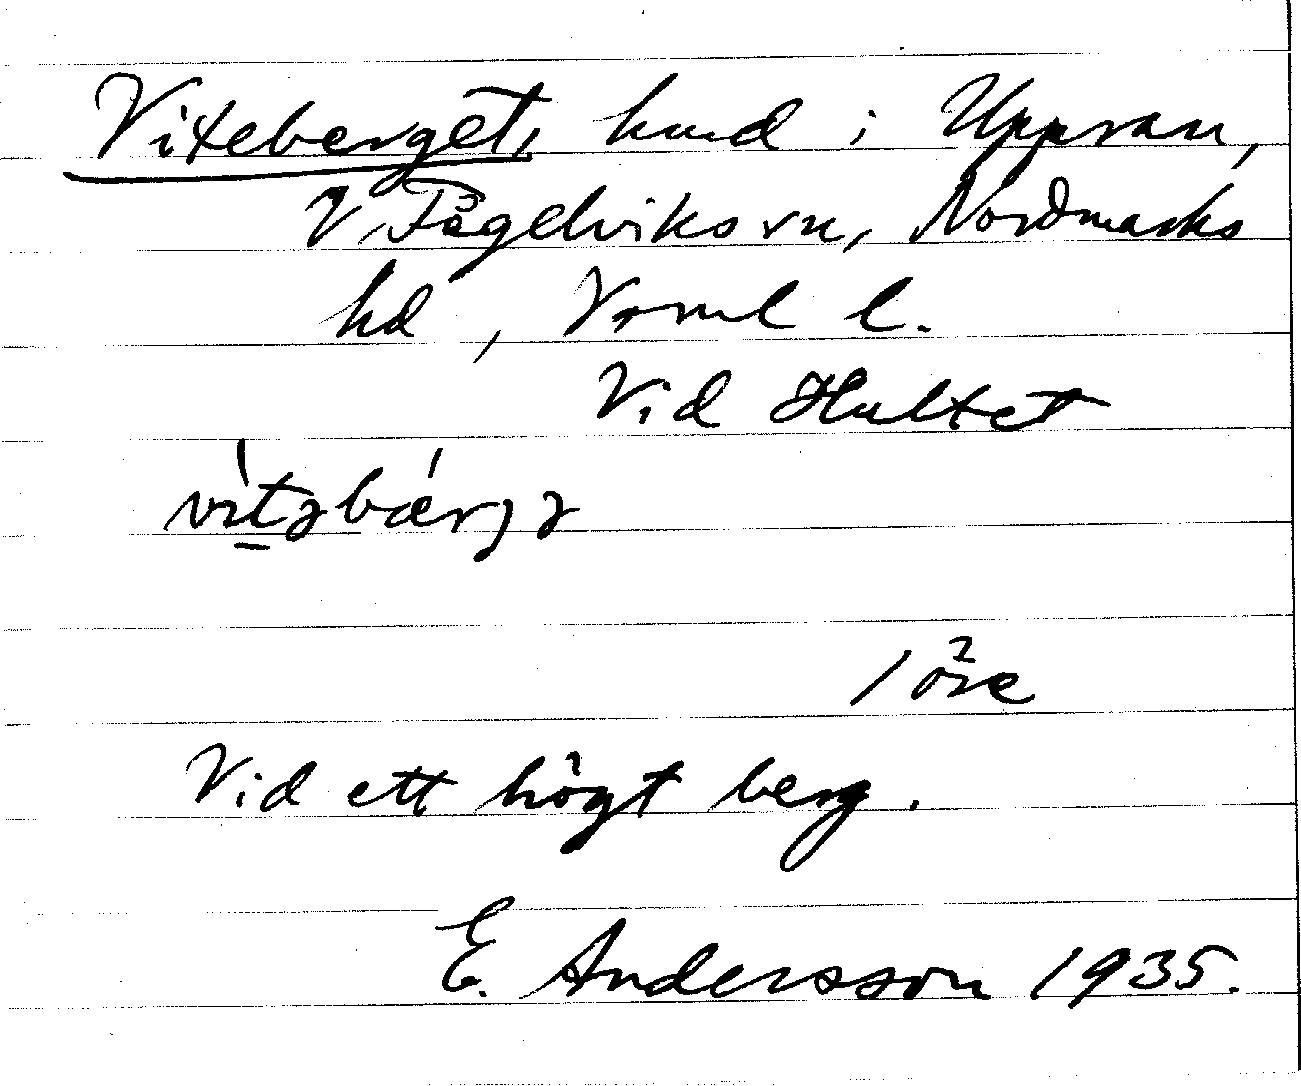 Viteberget, hmd i Uppsan,
V. Fågelviks sn, Nordmarks
hd, Vrml l.
Vid Hultet
vìtəbærjə
1 öre
Vid ett högt berg.
E. Andersson 1935.